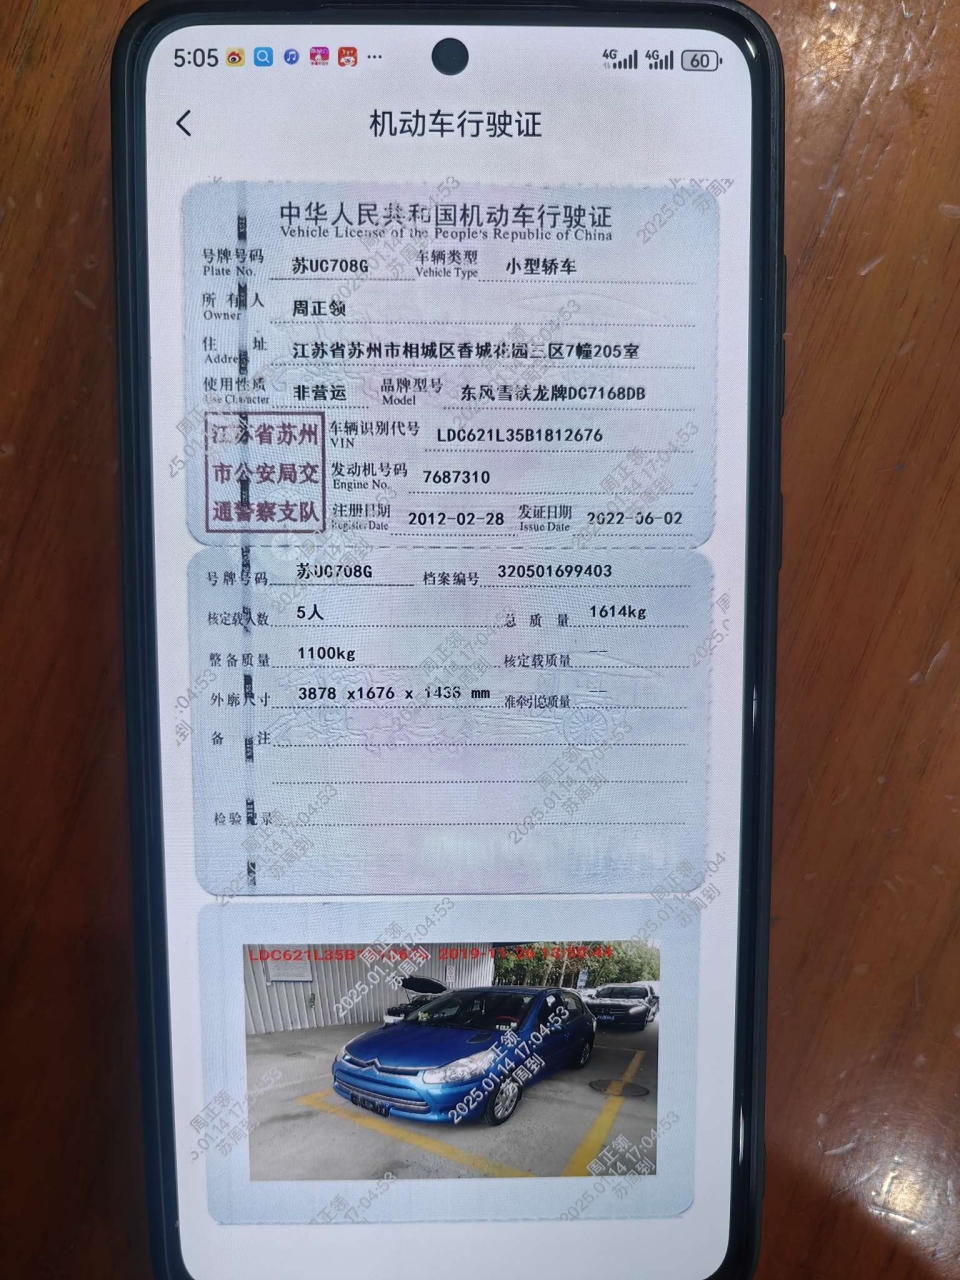 5:05
4G 4G 60
机动车行驶证
中华人民共和国机动车行驶证
Vehicle License of the People's Republic of China
号牌号码 苏UC708G 车辆类型 小型轿车
Plate No. Vehicle Type
所有人 周正领
Owner
住址 江苏省苏州市相城区香城花园三区7幢205室
Address
使用性质 非营运 品牌型号 东风雪铁龙牌DC7168DB
Use Character Model
江苏省苏州 车辆识别代号 LDC621L35B1812676
VIN
市公安局交 发动机号码 7687310
Engine No.
通警察支队 注册日期 2012-02-28 发证日期 2022-06-02
Register Date Issue Date
号牌号码 苏UC708G 档案编号 320501699403
核定载人数 5人 总质量 1614kg
整备质量 1100kg 核定载质量 --
外廓尺寸 3878 x1676 x 1438 mm 准牵引总质量 --
备注
检验记录
LDC621L35B
周正领
2025.01.14 17:04:53
苏周到